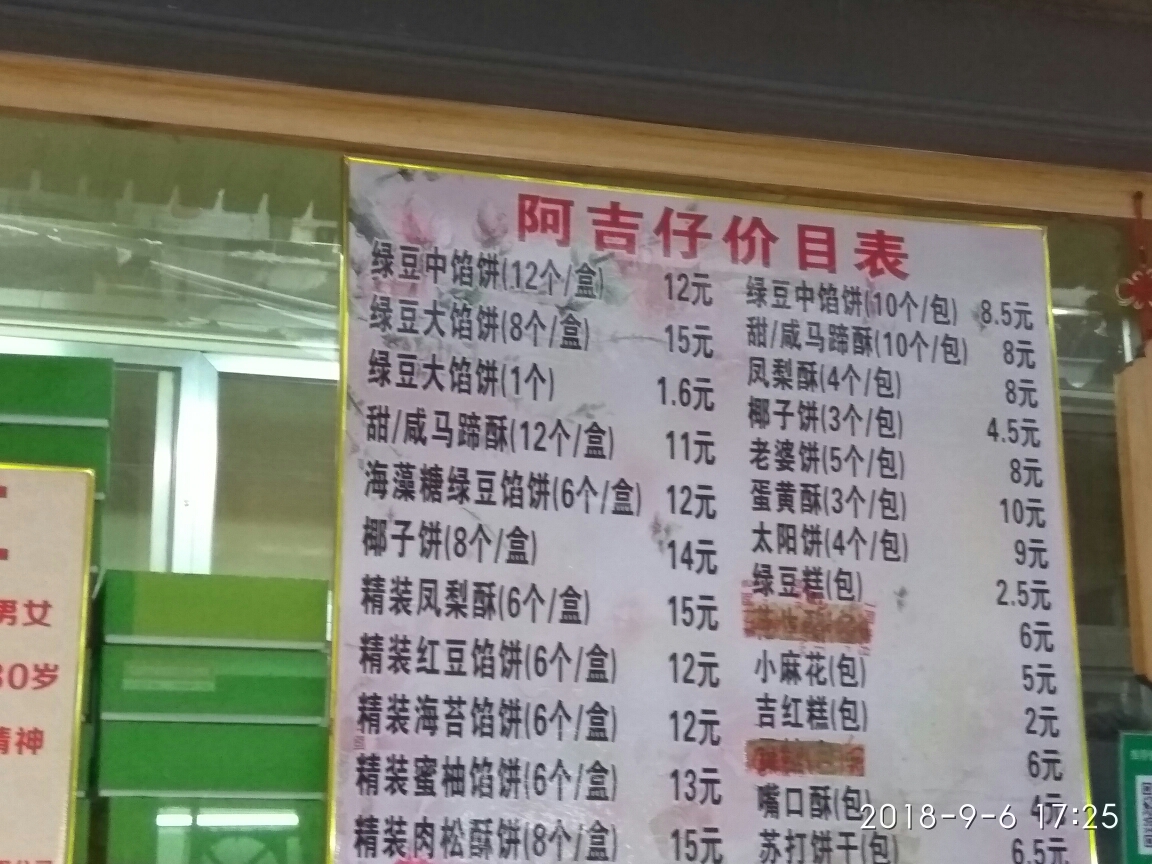 阿吉仔价目表
绿豆中馅饼(12个/盒) 12元
绿豆大馅饼(8个/盒) 15元
绿豆大馅饼(1个) 1.6元
甜/咸马蹄酥(12个/盒) 11元
海藻糖绿豆馅饼(6个/盒) 12元
椰子饼(8个/盒) 14元
精装凤梨酥(6个/盒) 15元
精装红豆馅饼(6个/盒) 12元
精装海苔馅饼(6个/盒) 12元
精装蜜柚馅饼(6个/盒) 13元
精装肉松酥饼(8个/盒) 15元
绿豆中馅饼(10个/包) 8.5元
甜/咸马蹄酥(10个/包) 8元
凤梨酥(4个/包) 8元
椰子饼(3个/包) 4.5元
老婆饼(5个/包) 8元
蛋黄酥(3个/包) 10元
太阳饼(4个/包) 9元
绿豆糕(包) 2.5元
6元
小麻花(包) 5元
吉红糕(包) 2元
6元
嘴口酥(包) 4元
苏打饼干(包) 6.5元
男女
30岁
精神
2018-9-6 17:25